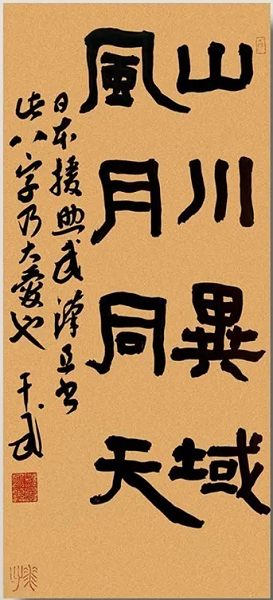 山川異域
風月同天
日本援助武漢
此八字乃大愛也